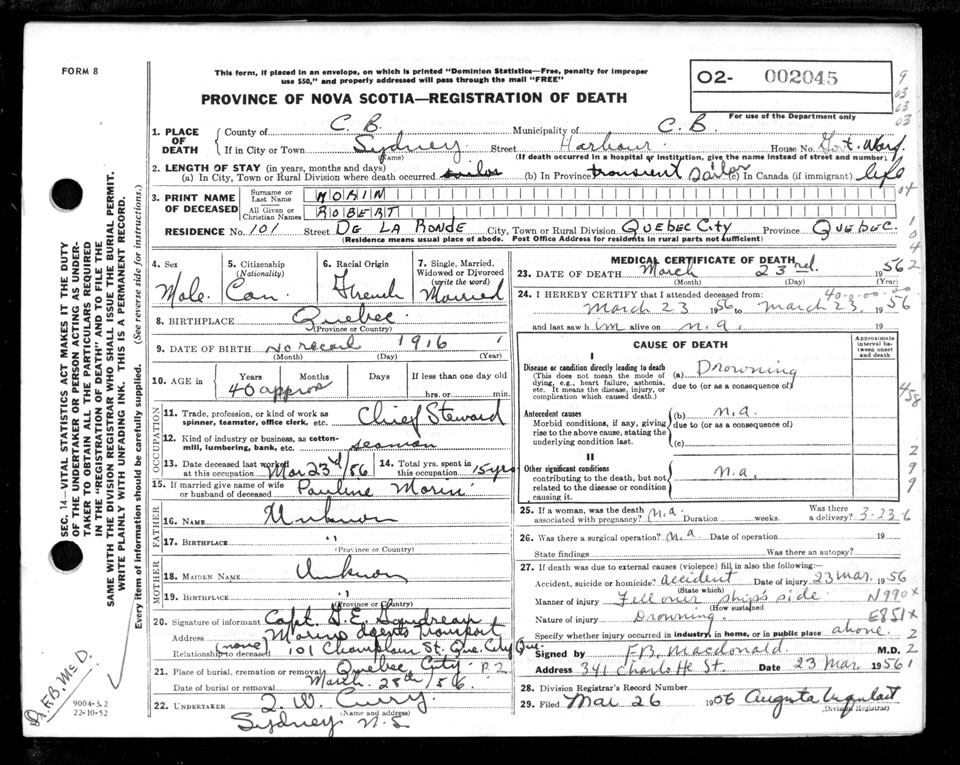 FORM 8
This form, if placed in an envelope, on which is printed "Dominion Statistics—Free, penalty for improper
use $50," and properly addressed will pass through the mail "FREE"
PROVINCE OF NOVA SCOTIA—REGISTRATION OF DEATH
O2- 002045
For use of the Department only
9
03
03
03
1. PLACE OF DEATH
County of C. B. Municipality of C. B.
If in City or Town Sydney Street Harbour House No. Gov't. Warf.
(Name) (If death occurred in a hospital or institution, give the name instead of street and number)
2. LENGTH OF STAY (in years, months and days)
(a) In City, Town or Rural Division where death occurred sailor (b) In Province transient Sailor (c) In Canada (if immigrant) life
3. PRINT NAME OF DECEASED
Surname or Last Name MORIN
All Given or Christian Names ROBERT
RESIDENCE No. 101 Street DE LA RONDE City, Town or Rural Division QUEBEC CITY Province QUEBEC.
(Residence means usual place of abode. Post Office Address for residents in rural parts not sufficient)
4. Sex Male.
5. Citizenship (Nationality) Can.
6. Racial Origin French
7. Single, Married, Widowed or Divorced (write the word) Married
8. BIRTHPLACE Quebec.
(Province or Country)
9. DATE OF BIRTH No record 1916
(Month) (Day) (Year)
10. AGE in Years Months Days If less than one day old
40 approx hrs. or min.
OCCUPATION
11. Trade, profession, or kind of work as spinner, teamster, office clerk, etc. Chief Steward
12. Kind of industry or business, as cotton-mill, lumbering, bank, etc. seaman
13. Date deceased last worked at this occupation Mar 23rd/56
14. Total yrs. spent in this occupation 15 yrs
15. If married give name of wife or husband of deceased Pauline Morin
FATHER
16. NAME Unknon
17. BIRTHPLACE "
(Province or Country)
MOTHER
18. MAIDEN NAME Unknon
19. BIRTHPLACE "
(Province or Country)
20. Signature of informant Capt. J.E.
Address Marine Agents Transport
Relationship to deceased (none) 101 Champlain St. Que. City Que.
21. Place of burial, cremation or removal Quebec City P.2
Date of burial or removal March. 28th/56.
22. UNDERTAKER J. W. Curry
(Name and address)
Sydney N.S
MEDICAL CERTIFICATE OF DEATH
23. DATE OF DEATH March 23rd. 1956 2
(Month) (Day) (Year)
24. I HEREBY CERTIFY that I attended deceased from:
40-0-00-00
March 23 1956 to March 23. 1956
and last saw him alive on n.a. 19
CAUSE OF DEATH
Approximate interval between onset and death
I
Disease or condition directly leading to death
(This does not mean the mode of dying, e.g., heart failure, asthenia, etc. It means the disease, injury, or complication which caused death.)
(a) Drowning
due to (or as a consequence of)
Antecedent causes
Morbid conditions, if any, giving rise to the above cause, stating the underlying condition last.
(b) n.a.
due to (or as a consequence of)
(c)
II
Other significant conditions
contributing to the death, but not related to the disease or condition causing it.
n.a.
25. If a woman, was the death associated with pregnancy? n.a. Duration weeks. Was there a delivery? 3-23-6
26. Was there a surgical operation? n.a. Date of operation 19
State findings Was there an autopsy?
27. If death was due to external causes (violence) fill in also the following:—
Accident, suicide or homicide? accident Date of injury 23 Mar. 1956
(State which)
Manner of injury Fell over ship's side. N990x
(How sustained)
Nature of injury Drowning. E851x
Specify whether injury occurred in industry, in home, or in public place above. 2
Signed by F.B. Macdonald. M.D. 2
Address 341 Charlotte St. Date 23 Mar. 1956 1
28. Division Registrar's Record Number
29. Filed Mar 26 1956 Augusta Urquhart
(Division Registrar)
SEC. 14—VITAL STATISTICS ACT MAKES IT THE DUTY
OF THE UNDERTAKER OR PERSON ACTING AS UNDERTAKER
TO OBTAIN ALL THE PARTICULARS REQUIRED
IN THE "REGISTRATION OF DEATH" AND TO FILE THE
SAME WITH THE DIVISION REGISTRAR WHO SHALL ISSUE THE BURIAL PERMIT.
WRITE PLAINLY WITH UNFADING INK. THIS IS A PERMANENT RECORD.
Every item of information should be carefully supplied. (See reverse side for instructions.)
Dr. F.B. McD.
9004-3.2
22-10-52